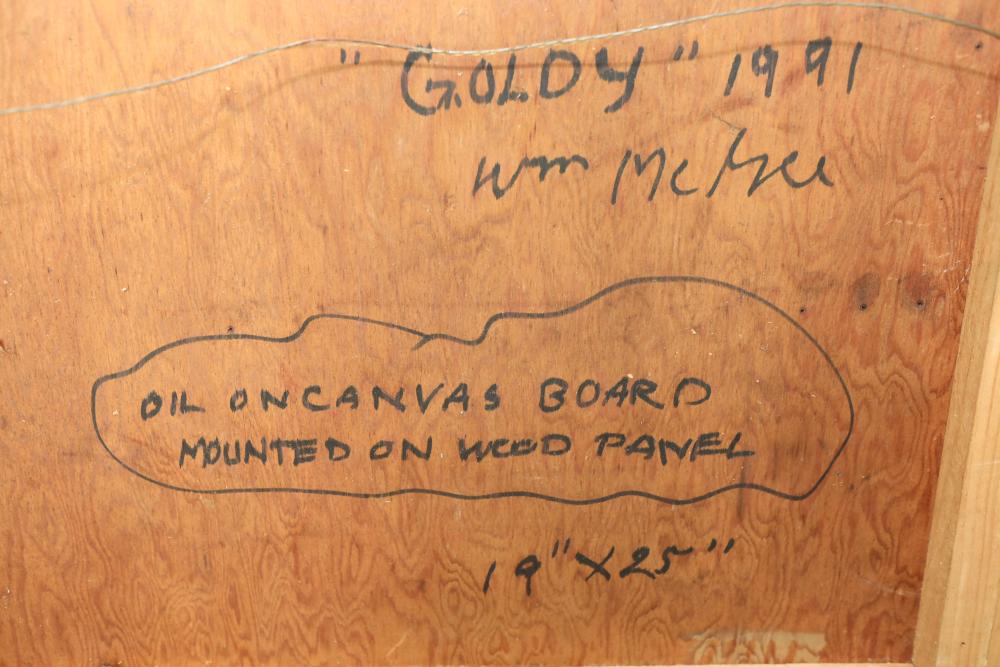 "GOLDY" 1991
Wm McGee
OIL ON CANVAS BOARD
MOUNTED ON WOOD PANEL
19" X 25"